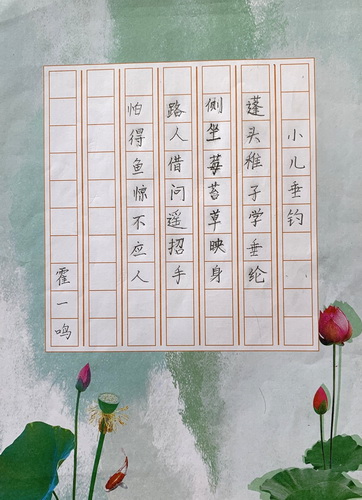 小儿垂钓
蓬头稚子学垂纶
侧坐莓苔草映身
路人借问遥招手
怕得鱼惊不应人
霍一鸣